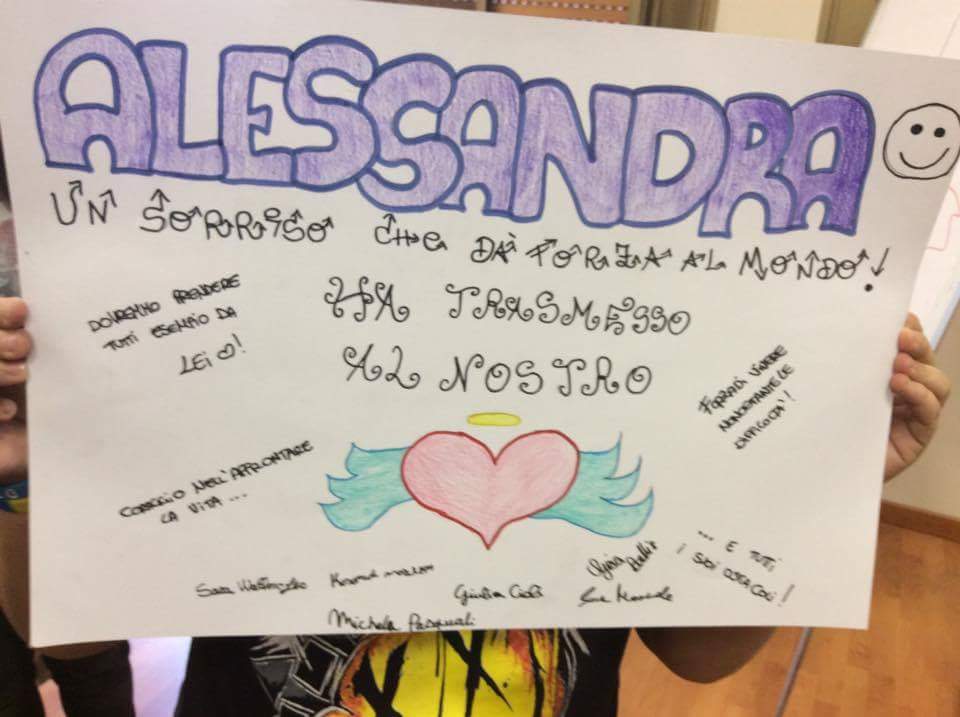 ALESSANDRA
UN SORRISO CHE DÀ FORZA AL MONDO!
HA TRASMESSO
AL NOSTRO
DOVREMMO PRENDERE
TUTTI ESEMPIO DA
LEI!
FORZA DI VIVERE
NONOSTANTE LE
DIFFICOLTÀ!
CORAGGIO NELL'AFFRONTARE
LA VITA...
... E TUTTI
I SUOI OSTACOLI!
Sara
Giulia
Michela Pasquali